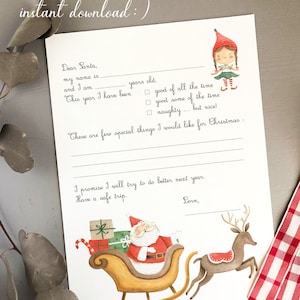 instant download : )
Dear Santa,
my name is
and I am years old.
This year I have been good all the time
good some of the time
naughty ... but nice!
These are few special things I would like for Christmas :
I promise I will try to do better next year.
Have a safe trip.
Love,